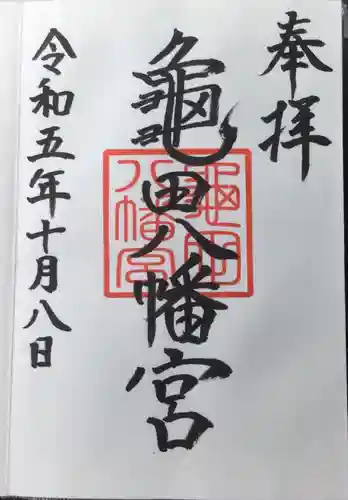 奉拝
龜田八幡宮
龜田
八幡宮
令和五年十月八日